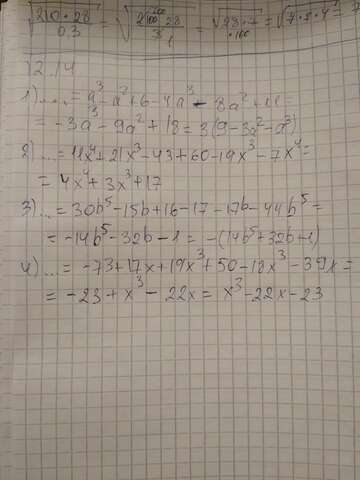 √(210·28/0.3) = √(2100·28/3) = √(28·7·100) = √(7·4·
12.14
1) ... = a³ - a² + 6 - 4a³ - 8a² + 12 =
= -3a³ - 9a² + 18 = 3(9 - 3a² - a³)
2) ... = 11x⁴ + 21x³ - 43 + 60 - 19x³ - 7x⁴ =
= 4x⁴ + 3x³ + 17
3) ... = 30b⁵ - 15b + 16 - 17 - 17b - 44b⁵ =
= -14b⁵ - 32b - 1 = -(14b⁵ + 32b + 1)
4) ... = -73 + 17x + 19x³ + 50 - 18x³ - 39x =
= -23 + x³ - 22x = x³ - 22x - 23